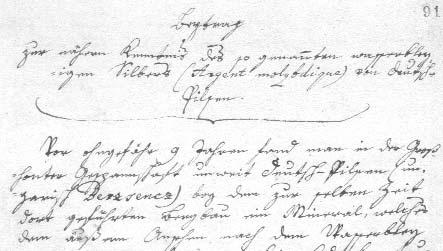 91
Beytrag
zur nähern Kenntnis des so genannten wasserbley-
-igen Silbers (Argent molybdique) von deutsch-
Pilsen.
Vor ohngefähr 9 Jahren fand man in der Groß-
honter Gespannschaft unweit deutsch-Pilsen (un-
garisch Berzsencz) bey dem zur selben Zeit
dort geführten Bergbau ein Mineral, welches
dem äußern Ansehen nach dem Wasserbley